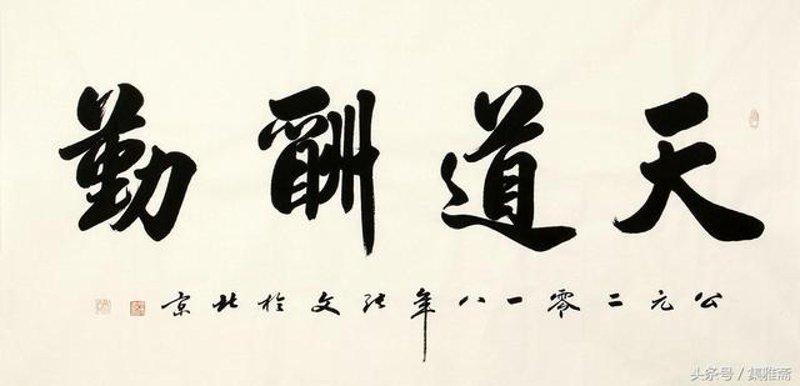 天道酬勤
公元二零一八年张文於北京
头条号／集雅斋